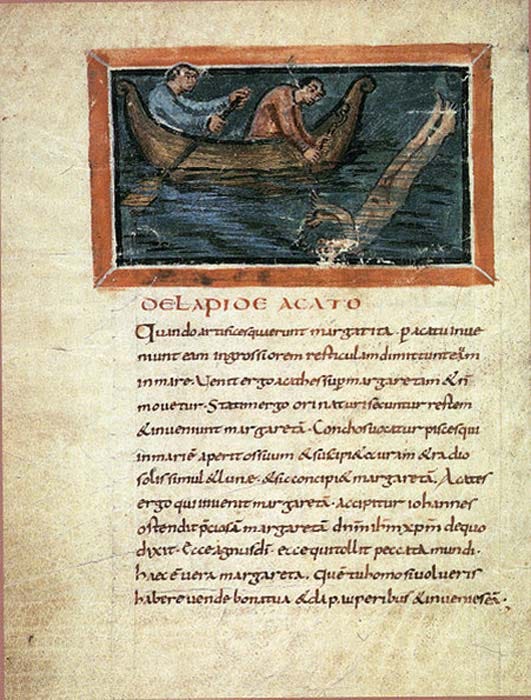 DE LAPIDE ACATO
Quando artifices querunt margarita · p acatu inve
niunt eam ingrossiorem resticulam dimittunt eam
in mare · Venit ergo acathes sup margaretam & n̄
movetur · Statim ergo orinatorisecuntur restem
& inveniunt margaretā · Conchos vocatur piscesqui
in mari ē aperit os suum & suscipi& curam & radio
solis simul & lunae · & sic concipi& margaretā. Acates
ergo qui invenit margaretā · accipitur iohannes
ostendit p̄ciosā margaretā dn̄m ih̄m xp̄m de quo
dixit · Ecce agnus dī · ecce qui tollit peccata mundi ·
haec ē vera margareta. Quē tu homo si volueris
habere vende bona tua & da pauperibus & invenies eā ·